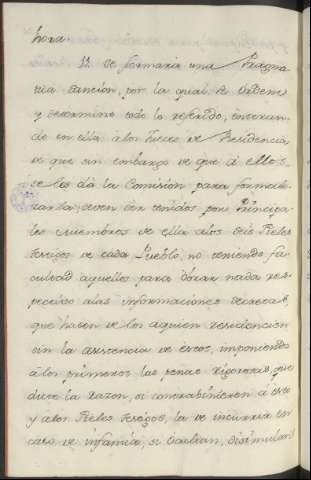 hora.
12. Se formaria una Pragma
tica Sancion, por la qual se Ordene
y determine todo lo referido, encargan
do en ella á los Jueces de Residencia
de que sin embargo de que á ellos
se les dá la Comisión para formali
zarla, deven ser tenidos por Principa
les miembros de ella alos seis Fieles
Testigos de cada Pueblo, no teniendo fa
cultad aquellos para obrar nada res
pectivo alas informaciones secretas
que hacen de los aquien residencian
sin la asistencia de estos, imponiendo
á los primeros las penas rigorosas que
dicte la razon, si contrabinieren á esto
y alos Fieles Testigos, la de incurrir en
caso de infamia, si ocultan, disimulan